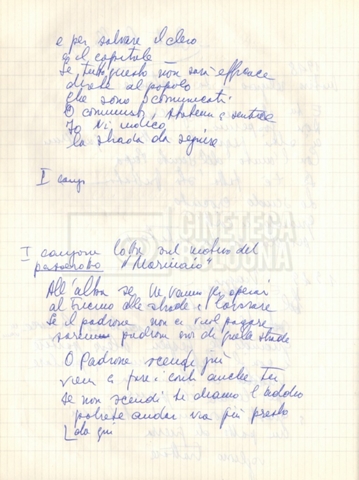 e per salvare il clero
e il capitale
se tutto questo non sarà efficace
direte al popolo
che sono scomunicati
O comunisti statemi a sentire
Io vi indico
la strada da seguire
I canz
I canzone sul motivo del
"Marinaio"
CINETECA
BOLOGNA
All'alba se ne vanno gli operai
al turno delle strade a lavorare
Se il padrone non ci vuol pagare
saremo padroni noi di queste strade
O Padrone scendi giù
vieni a fare i conti anche tu
se non scendi ti diamo l'addio
potrete andar via più presto
da qui